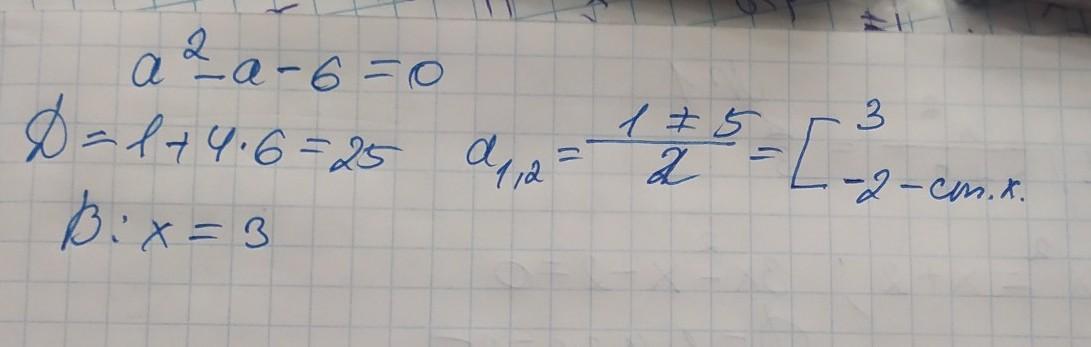 a² - a - 6 = 0
D = 1 + 4·6 = 25 a₁,₂ = (1 ∓ 5)/2 = [ 3
-2 - ст.х.
В: x = 3